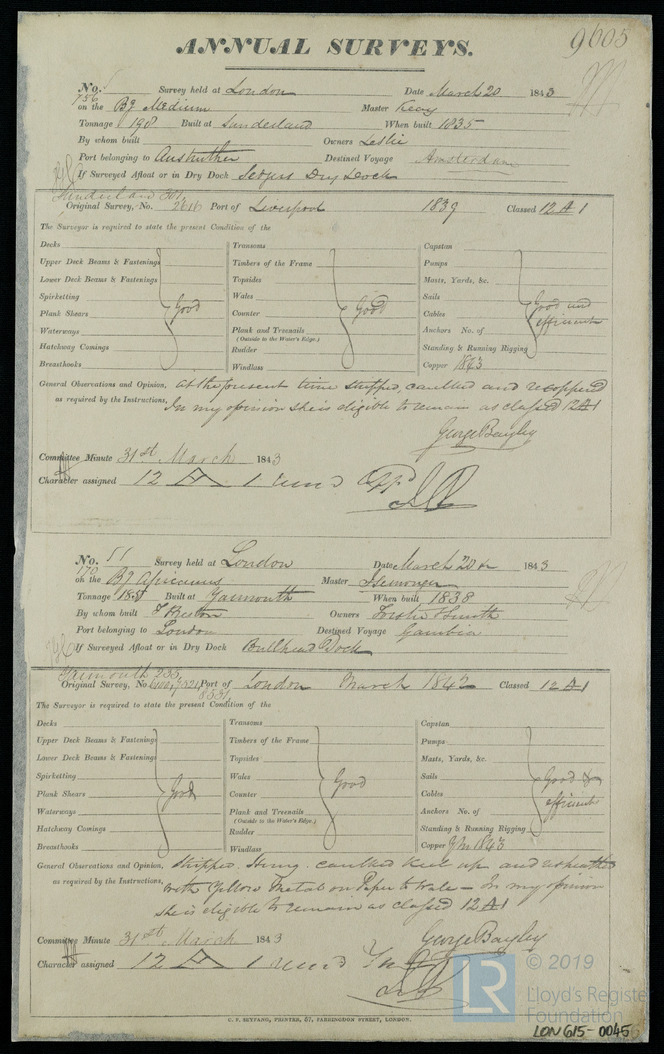 ANNUAL SURVEYS.
9605
No. Survey held at London Date March 20 1843
756
on the Bg Medium Master Keay
Tonnage 198 Built at Sunderland When built 1835
By whom built Owners Leslie
Port belonging to Anstruther Destined Voyage Amsterdam
If Surveyed Afloat or in Dry Dock Dry Dock
Sunderland 301
Original Survey, No. 2616 Port of Liverpool 1839 Classed 12 A 1
The Surveyor is required to state the present Condition of the
Decks Transoms Capstan
Upper Deck Beams & Fastenings Timbers of the Frame Pumps
Lower Deck Beams & Fastenings Topsides Masts, Yards, &c.
Spirketting Wales Sails
Plank Shears Good Counter Good Cables Good and efficient
Waterways Plank and Treenails Anchors No. of
(Outside to the Water's Edge.)
Hatchway Comings Rudder Standing & Running Rigging
Breasthooks Windlass Copper 1843
General Observations and Opinion, at the present time stripped, caulked and recoppered
as required by the Instructions, In my opinion she is eligible to remain as classed 12 A 1
George Bayley
Committee Minute 31st March 1843
Character assigned 12 A 1
No. 51 Survey held at London Date March 20 1843
170
on the Bg Africanus Master Isemonger
Tonnage 188 Built at Yarmouth When built 1838
By whom built T Preston Owners Forster & Smith
Port belonging to London Destined Voyage Gambia
If Surveyed Afloat or in Dry Dock Bullhead Dock
Yarmouth 235
Original Survey, No. 7521 Port of London March 1842 Classed 12 A 1
8531
The Surveyor is required to state the present Condition of the
Decks Transoms Capstan
Upper Deck Beams & Fastenings Timbers of the Frame Pumps
Lower Deck Beams & Fastenings Topsides Masts, Yards, &c.
Spirketting Wales Sails Good &
Plank Shears Good Counter Good Cables efficient
Waterways Plank and Treenails Anchors No. of
(Outside to the Water's Edge.)
Hatchway Comings Rudder Standing & Running Rigging
Breasthooks Windlass Copper YM 1843
General Observations and Opinion, stripped, caulked keel up and resheathed
as required by the Instructions, with Yellow Metal on Paper to Wale - In my opinion
she is eligible to remain as classed 12 A 1
George Bayley
Committee Minute 31st March 1843
Character assigned 12 A 1
LR © 2019
Lloyd's Register
Foundation
C. F. SEYFANG, PRINTER, 57, FARRINGDON STREET, LONDON.
LON 615-0045